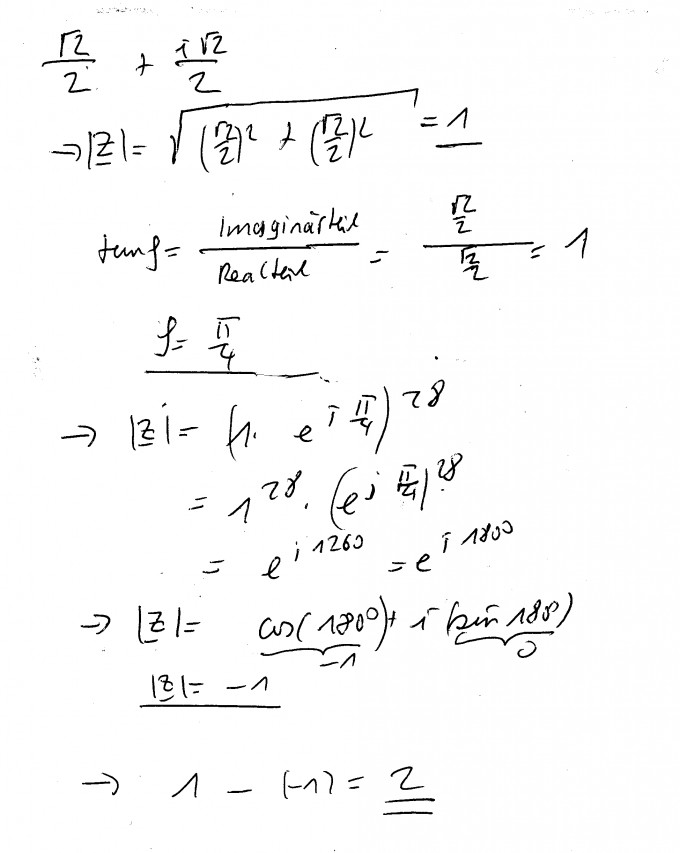 √2/2 + i√2/2
→ |z| = √((√2/2)² + (√2/2)²) = 1
tan φ = Imaginärteil/Realteil = (√2/2)/(√2/2) = 1
φ = π/4
→ |z| = (1 · e^(i π/4))^28
= 1^28 · (e^(i π/4))^28
= e^(i 1260) = e^(i 180°)
→ |z| = cos(180°) + i (sin 180°)
-1 0
|z| = -1
→ 1 - (-1) = 2